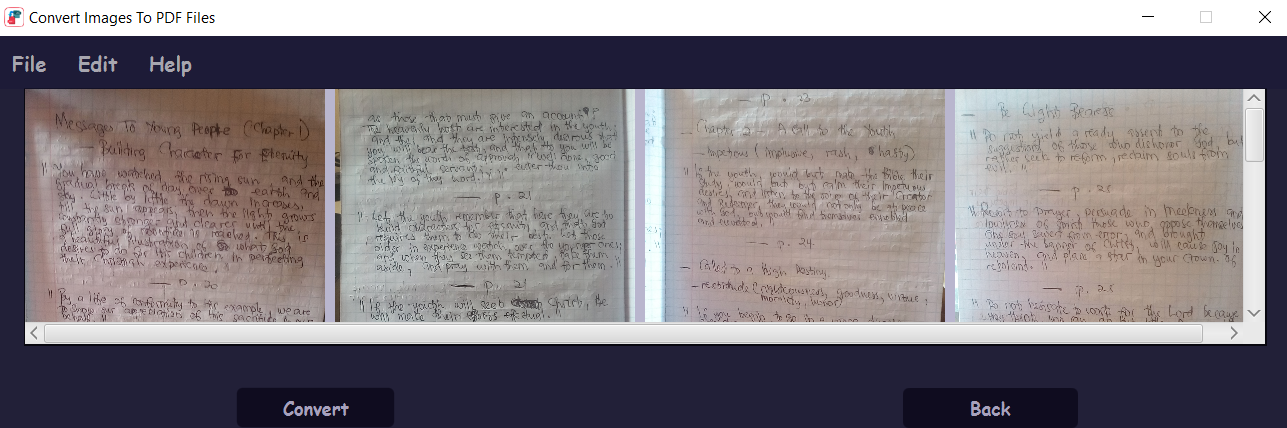 Convert Images To PDF Files
File Edit Help
Messages To Young People (Chapter 1)
— Building Character for Eternity
" You have watched the rising sun, and the
gradual break of day over earth and
sky. Little by little the dawn increases,
till the sun appears; then the light grows
constantly stronger and clearer until the
full glory of noontide is reached. This is
a beautiful illustration of what God
desires to do for his children in perfecting
their Christian experience.
— p. 20
" By a life of conformity to
as those that must give an account. "
The heavenly host are interested in the youth,
and they are intensely desirous that
you will bear the test, and that to you will be
spoken the words of approval, " Well done, good
and faithful servant; enter thou into
the joy of thy Lord. "
— p. 21
" Let the youth remember that here they are to
build characters for eternity, and that God
requires them to do their best. Let those
older in experience watch over the younger ones;
and when they see them tempted, take them
aside, and pray with them and for them. "
— p. 21
" If the youth will seek Christ, the
— p. 23
— Chapter 2 — A Call to the Youth
— Impetuous (impulsive, rash, hasty)
" If the youth would but make the Bible their
— p. 24
— Called to a High Destiny
— rectitude (righteousness, goodness, virtue,
morality, honor)
— Be Light Bearers
" Do not yield a ready assent to the
suggestions of those who dishonor God, but
rather seek to reform, reclaim souls from
evil. "
— p. 25
" Resort to prayer, persuade in meekness and
lowliness of spirit those who oppose themselves.
One soul saved from error, and brought
under the banner of Christ, will cause joy in
heaven, and place a star in your crown of
rejoicing. "
— p. 25
" Do not hesitate to work for the Lord because
Convert
Back